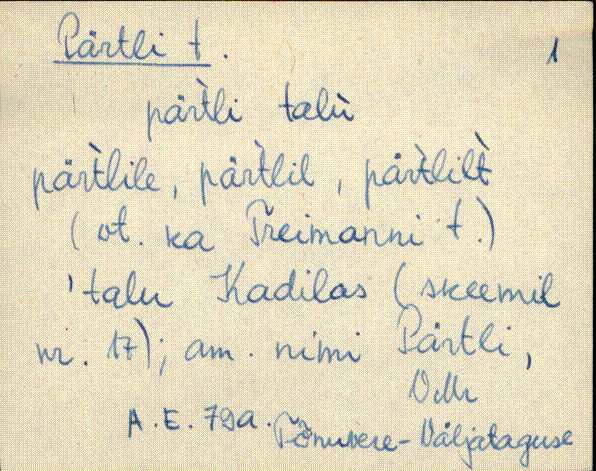 Pärtli t. 1
pär̀tli talù
pär̀tlile, pär̀tlil, pär̀tlilt̀
(vt. ka Preimanni t.)
'talu Kadilas (skeemil
nr. 17); am. nimi Pärtli,
VMr
A.E. 79a. Tõnuvere-Väljataguse